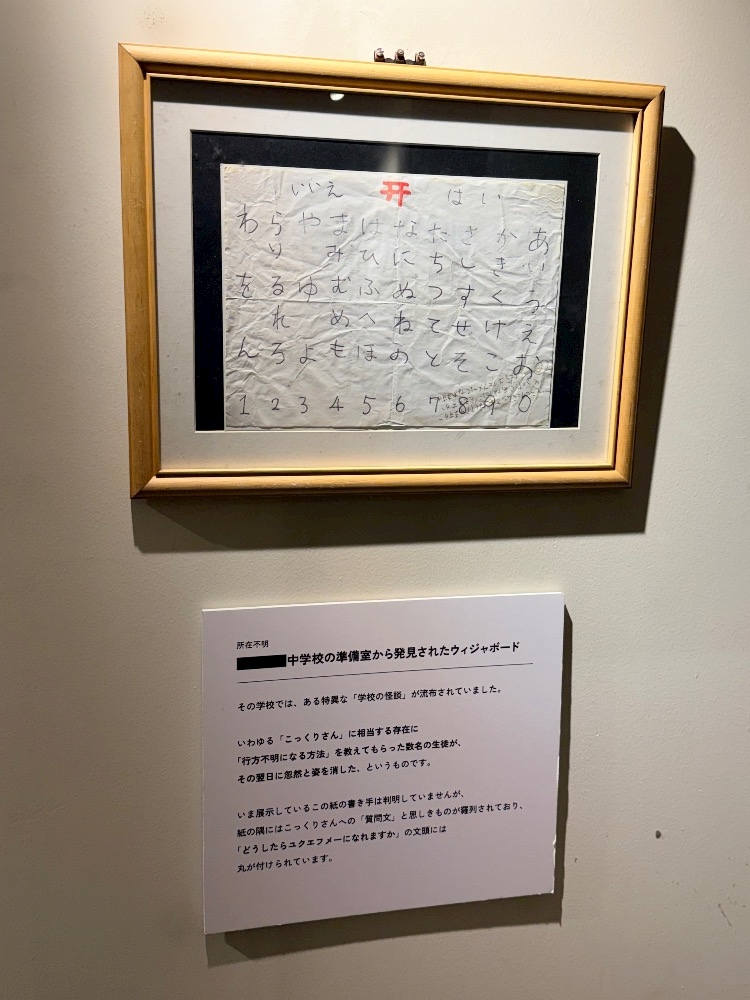 いいえ はい
あいうえお
かきくけこ
さしすせそ
たちつてと
なにぬねの
はひふへほ
まみむめも
やゆよ
らりるれろ
わをん
1 2 3 4 5 6 7 8 9 0
所在不明
中学校の準備室から発見されたウィジャボード
その学校では、ある特異な「学校の怪談」が流布されていました。
いわゆる「こっくりさん」に相当する存在に
「行方不明になる方法」を教えてもらった数名の生徒が、
その翌日に忽然と姿を消した、というものです。
いま展示しているこの紙の書き手は判明していませんが、
紙の隅にはこっくりさんへの「質問文」と思しきものが羅列されており、
「どうしたらユクエフメーになれますか」の文頭には
丸が付けられています。